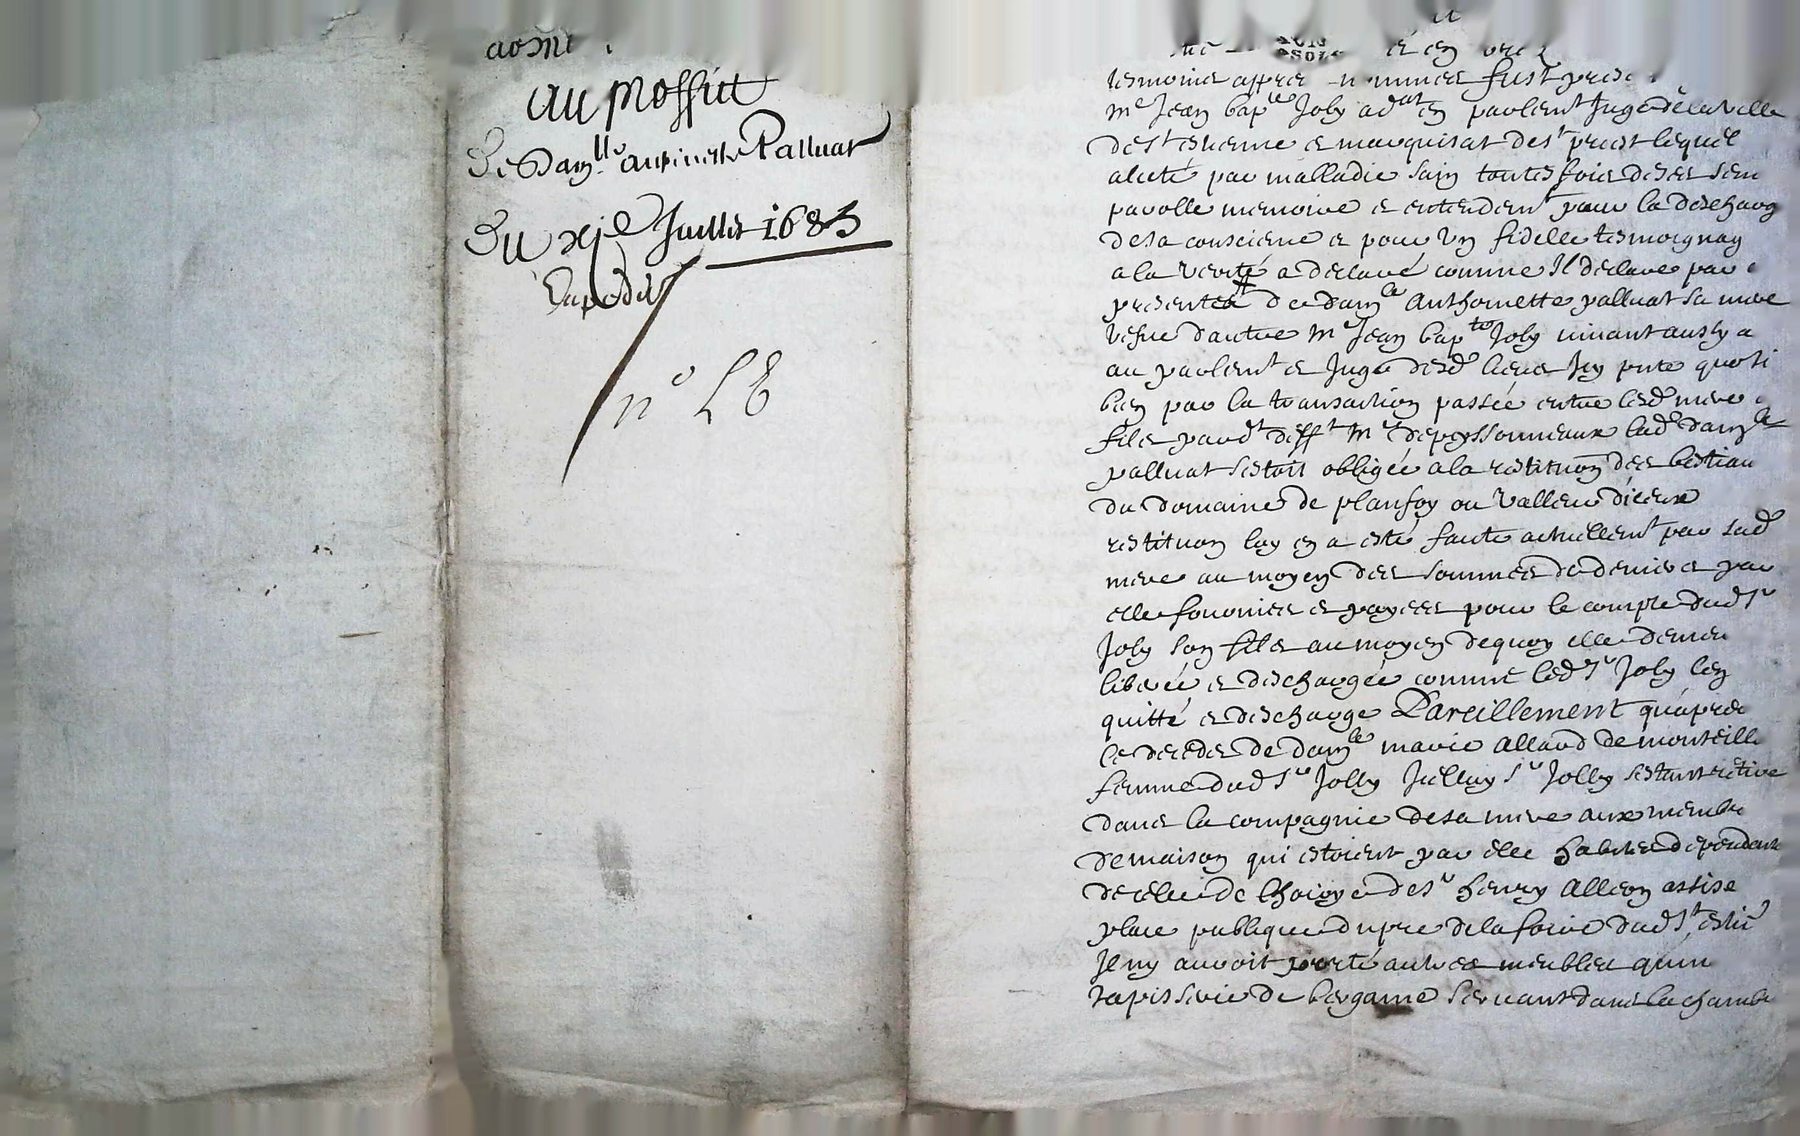 au proffict
De Dam.lle Antoinette Palluat
Du xje Juillet 1683
Expedié
n° L8
tesmoins apres nommes fust
Me Jean bapte Joly adat en parlent Juge de la ville
de st estienne et marquisat de st priest lequel
alicté par malladie sain toutesfois de ses sens
parolle memoire et entendemt pour la descharg
de sa conscience et pour un fidelle tesmoignag
a la verité a declaré comme Il declare par
presente de damle Anthoinette palluat sa mere
vefve d'autre Me Jean bapte Joly vivant aussy a
au parlemt et Juge desd lieux
bien par la transaction passée entre lesd mere
fils pardt defft Me depeyssonneaux lad damle
palluat s'estoit obligée a la restituon des bestiau
du domaine de planfoy ou valleur d'iceux
restituon luy en a esté faicte actuellemt par sad
mere au moyen des sommes de deniers par
elle fournies et payees pour le compte dud sr
Joly son fils au moyen de quoy elle demeu
liberée et deschargée comme led sr Joly l'en
quitte et descharge Pareillement qu'apres
le deceds de damle marie allard de monteille
femme dud sr Jolly Icelluy sr Jolly s'estant retire
dans la compagnie de sa mere aux membre
de maison qui estoient par elle dependant
de celle de de sr henry alleon assise
place publique du pre de la foire dud st estie
Il ny auroit porté autres meubles qu'un
tapisserie de bergame servant dans la chambr